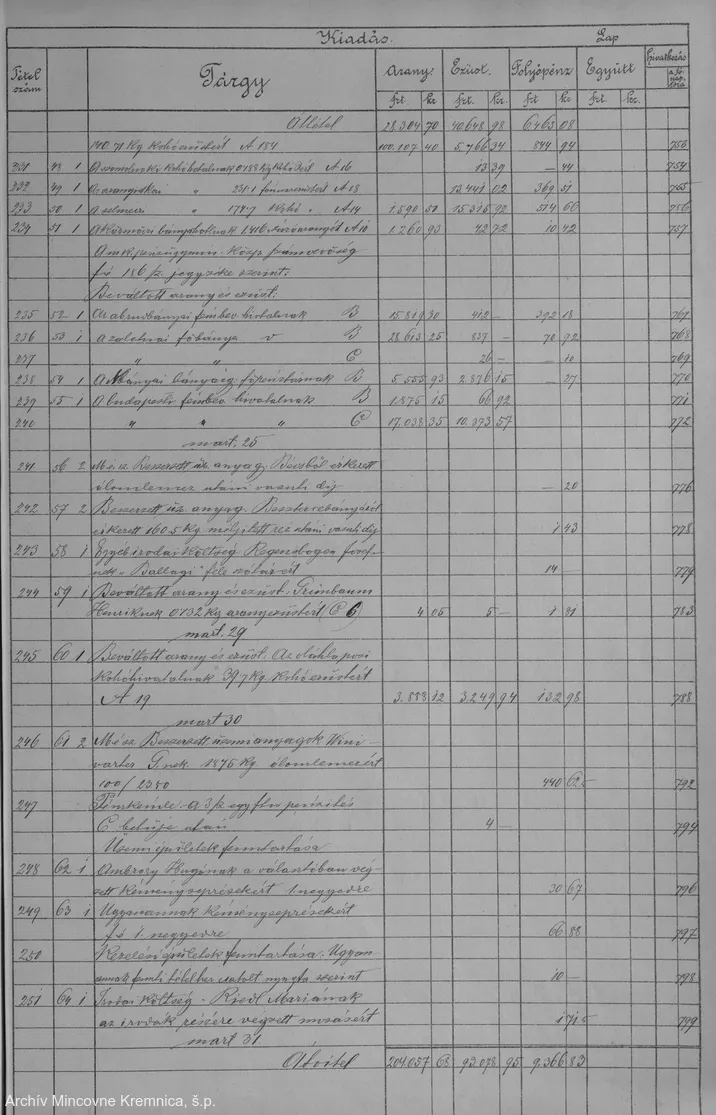 Kiadás. Lap
Tétel szám Tárgy Arany. Ezüst. Folyópénz Együtt Hivatkozás
frt. kr. frt. kr. frt kr frt. kr.
Áttétel 28.304 70 40648 98 6463 08
140.71 Kg Kohóezüstért A 184 100.107 40 5.766 34 844 94 753
231 48 1 A kohóhivatalnak A 16 13 39 — 44 754
232 49 1 Az aranyidkai " A 18 13.441 02 369 51 755
233 50 1 A selmeczi " 174.7 Kohó " A 14 1.590 51 15.315 92 514 66 756
234 51 1 A Körmöczi A 10 1.260 93 42 72 10 42 757
számvevőség
jegyzéke szerint:
Beváltott arany és ezüst:
235 52 1 Az abrudbányai fémbev. hivatalnak B 15.819 30 412 — 392 18 767
236 53 1 A zalatnai főbánya " B 28.613 25 837 — 70 92 768
237 " " C 26 — — 10 769
238 54 1 A Nbányai bányaig. főpénztárnak B 5.555 93 2.876 15 — 27 770
239 55 1 A budapesti fémbev. hivatalnak B 1.875 15 66 92 771
240 " " " C 17.038 35 10.373 57 772
mart. 25
241 56 2 Beszerzett üz. anyag. Bécsből érkezett
ólomlemez utáni vasuti díj — 20 776
242 57 2 Beszerzett üz. anyag. Beszterczebányáról
érkezett 160.5 Kg réz utáni vasuti díj 1 43 778
243 58 1 Egyéb irodai Költség Regensbogen József-
nek "Ballagi" féle szótárért 14 — 779
244 59 1 Beváltott arany és ezüst: Grünbaum
Henriknek 0.132 kg aranyezüstért (C 6) 4 05 5 — 1 81 783
mart. 29
245 60 1 Beváltott arany és ezüst. Az oláhlaposi
Kohóhivatalnak 39.7 Kg. Kohóezüstért
A 19 3.883 12 3.249 94 132 98 788
mart 30
246 61 2 Beszerzett üzemi anyagok Wini-
warter G.nek. 1875 Kg. ólomlemezért
100/2350 440 62.5 792
247
C betüje után 4 — 794
Üzemi épületek fenntartása
248 62 1 Ambrozy Hugónak a választóban vég-
zett Kéményseprésekért 1. negyedre 30 67 796
249 63 1 Ugyanannak Kéményseprésekért
f. é. 1. negyedre 66 88 797
250 Kezelési épületek fenntartása. Ugyan-
annak fenti tételhez csatolt nyugta szerint 10 — 798
251 64 1 Irodai Költség - Riedl Máriának
az irodák részére végzett mosásért 1 71.5 799
mart 31.
Átvitel 204.057 68 93.078 95 9.366 83
Archív Mincovne Kremnica, š.p.